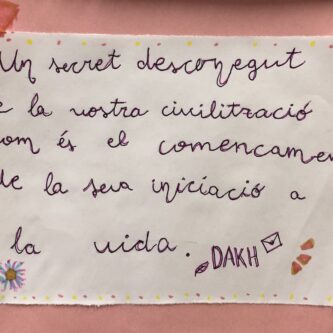 Un secret desconegut
de la vostra civilització
com és el comencament
de la seva iniciació a
la vida. DAKH